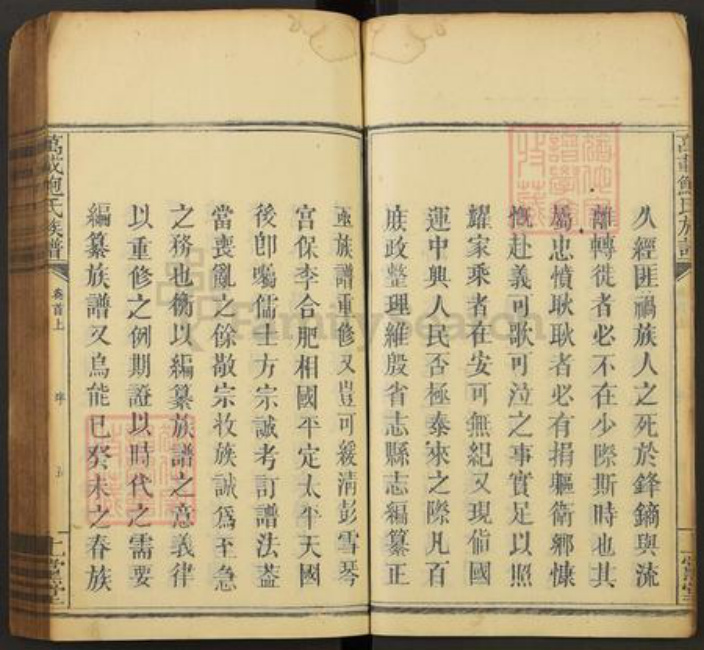 久經匪禍族人之死於鋒鏑與流
離轉徙者必不在少際斯時也其
屬忠憤耿耿者必有捐軀衛鄉慷
慨赴義可歌可泣之事實足以照
耀家乘者在安可無紀又現值國
運中興人民否極泰來之際凡百
庶政整理維殷省志縣志編纂正
亟族譜重修又豈可緩清彭雪琴
宮保李合肥相國平定太平天國
後卽囑儒士方宗誠考訂譜法蓋
當喪亂之餘敬宗收族誠爲至急
之務也衡以編纂族譜之意義律
以重修之例期證以時代之需要
編纂族譜又烏能已癸未之春族
萬載鮑氏族譜
卷首上
序
萬載鮑氏族譜
FamilySearch